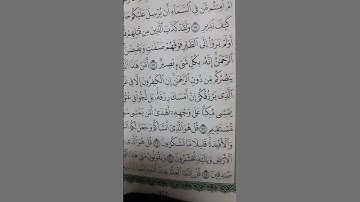 أَمْ أَمِنتُم مَّن فِي السَّمَاءِ أَن يُرْسِلَ عَلَيْكُمْ
كَيْفَ نَذِيرِ ۝ وَلَقَدْ كَذَّبَ الَّذِينَ مِن قَبْلِهِمْ
أَوَلَمْ يَرَوْا إِلَى الطَّيْرِ فَوْقَهُمْ صَافَّاتٍ وَيَقْبِضْنَ
الرَّحْمَٰنُ إِنَّهُ بِكُلِّ شَيْءٍ بَصِيرٌ ۝ أَمَّنْ هَٰذَا
يَنصُرُكُم مِّن دُونِ الرَّحْمَٰنِ إِنِ الْكَافِرُونَ إِلَّا
الَّذِي يَرْزُقُكُمْ إِنْ أَمْسَكَ رِزْقَهُ بَل لَّجُّوا فِي
يَمْشِي مُكِبًّا عَلَىٰ وَجْهِهِ أَهْدَىٰ أَمَّن يَمْشِي
مُّسْتَقِيمٍ ۝ قُلْ هُوَ الَّذِي أَنشَأَكُمْ وَجَعَلَ لَكُمُ
وَالْأَفْئِدَةَ قَلِيلًا مَّا تَشْكُرُونَ ۝ قُلْ هُوَ الَّذِي
الْأَرْضِ وَإِلَيْهِ تُحْشَرُونَ ۝ وَيَقُولُونَ مَتَىٰ هَٰذَا
صَادِقِينَ ۝ قُلْ إِنَّمَا الْعِلْمُ عِندَ